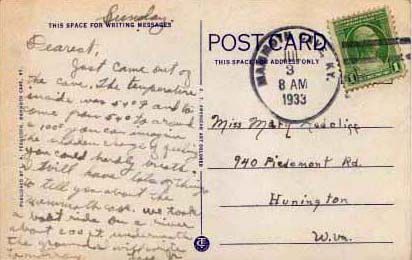 Sunday.
THIS SPACE FOR WRITING MESSAGES
Dearest,
Just came out of
the cave. The temperature
inside was 54°F and to
come from 54° to around
100° you can imagine
the sudden change of feeling
you could hardly breath.
I will have lots of things
to tell you about the
mammoth cave. we took
a boat ride on a river
about 200 ft underneath
the ground will write
tomorrow
POST CARD
THIS SPACE FOR ADDRESS ONLY
MAMMOTH CAVE, KY.
3
8 AM
1933
1
Miss Mary
940 Piedmont Rd.
Hunington
W.Va.
C. T. AMERICAN ART COLORED
CT